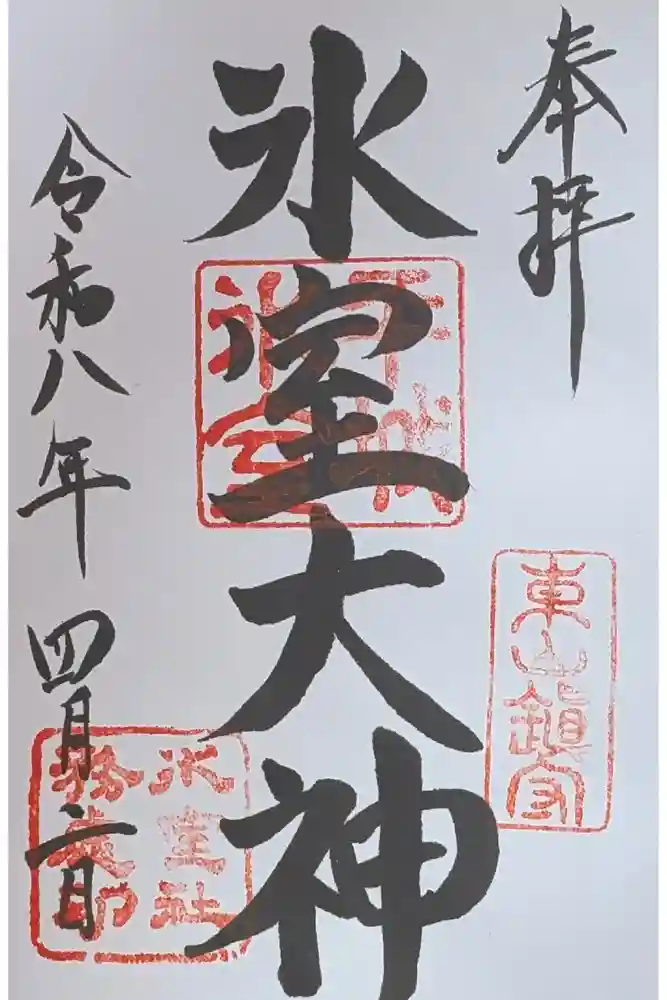 奉拝
東山鎮守
氷室大神
平城
氷室
令和八年四月二日
氷室社
務處印